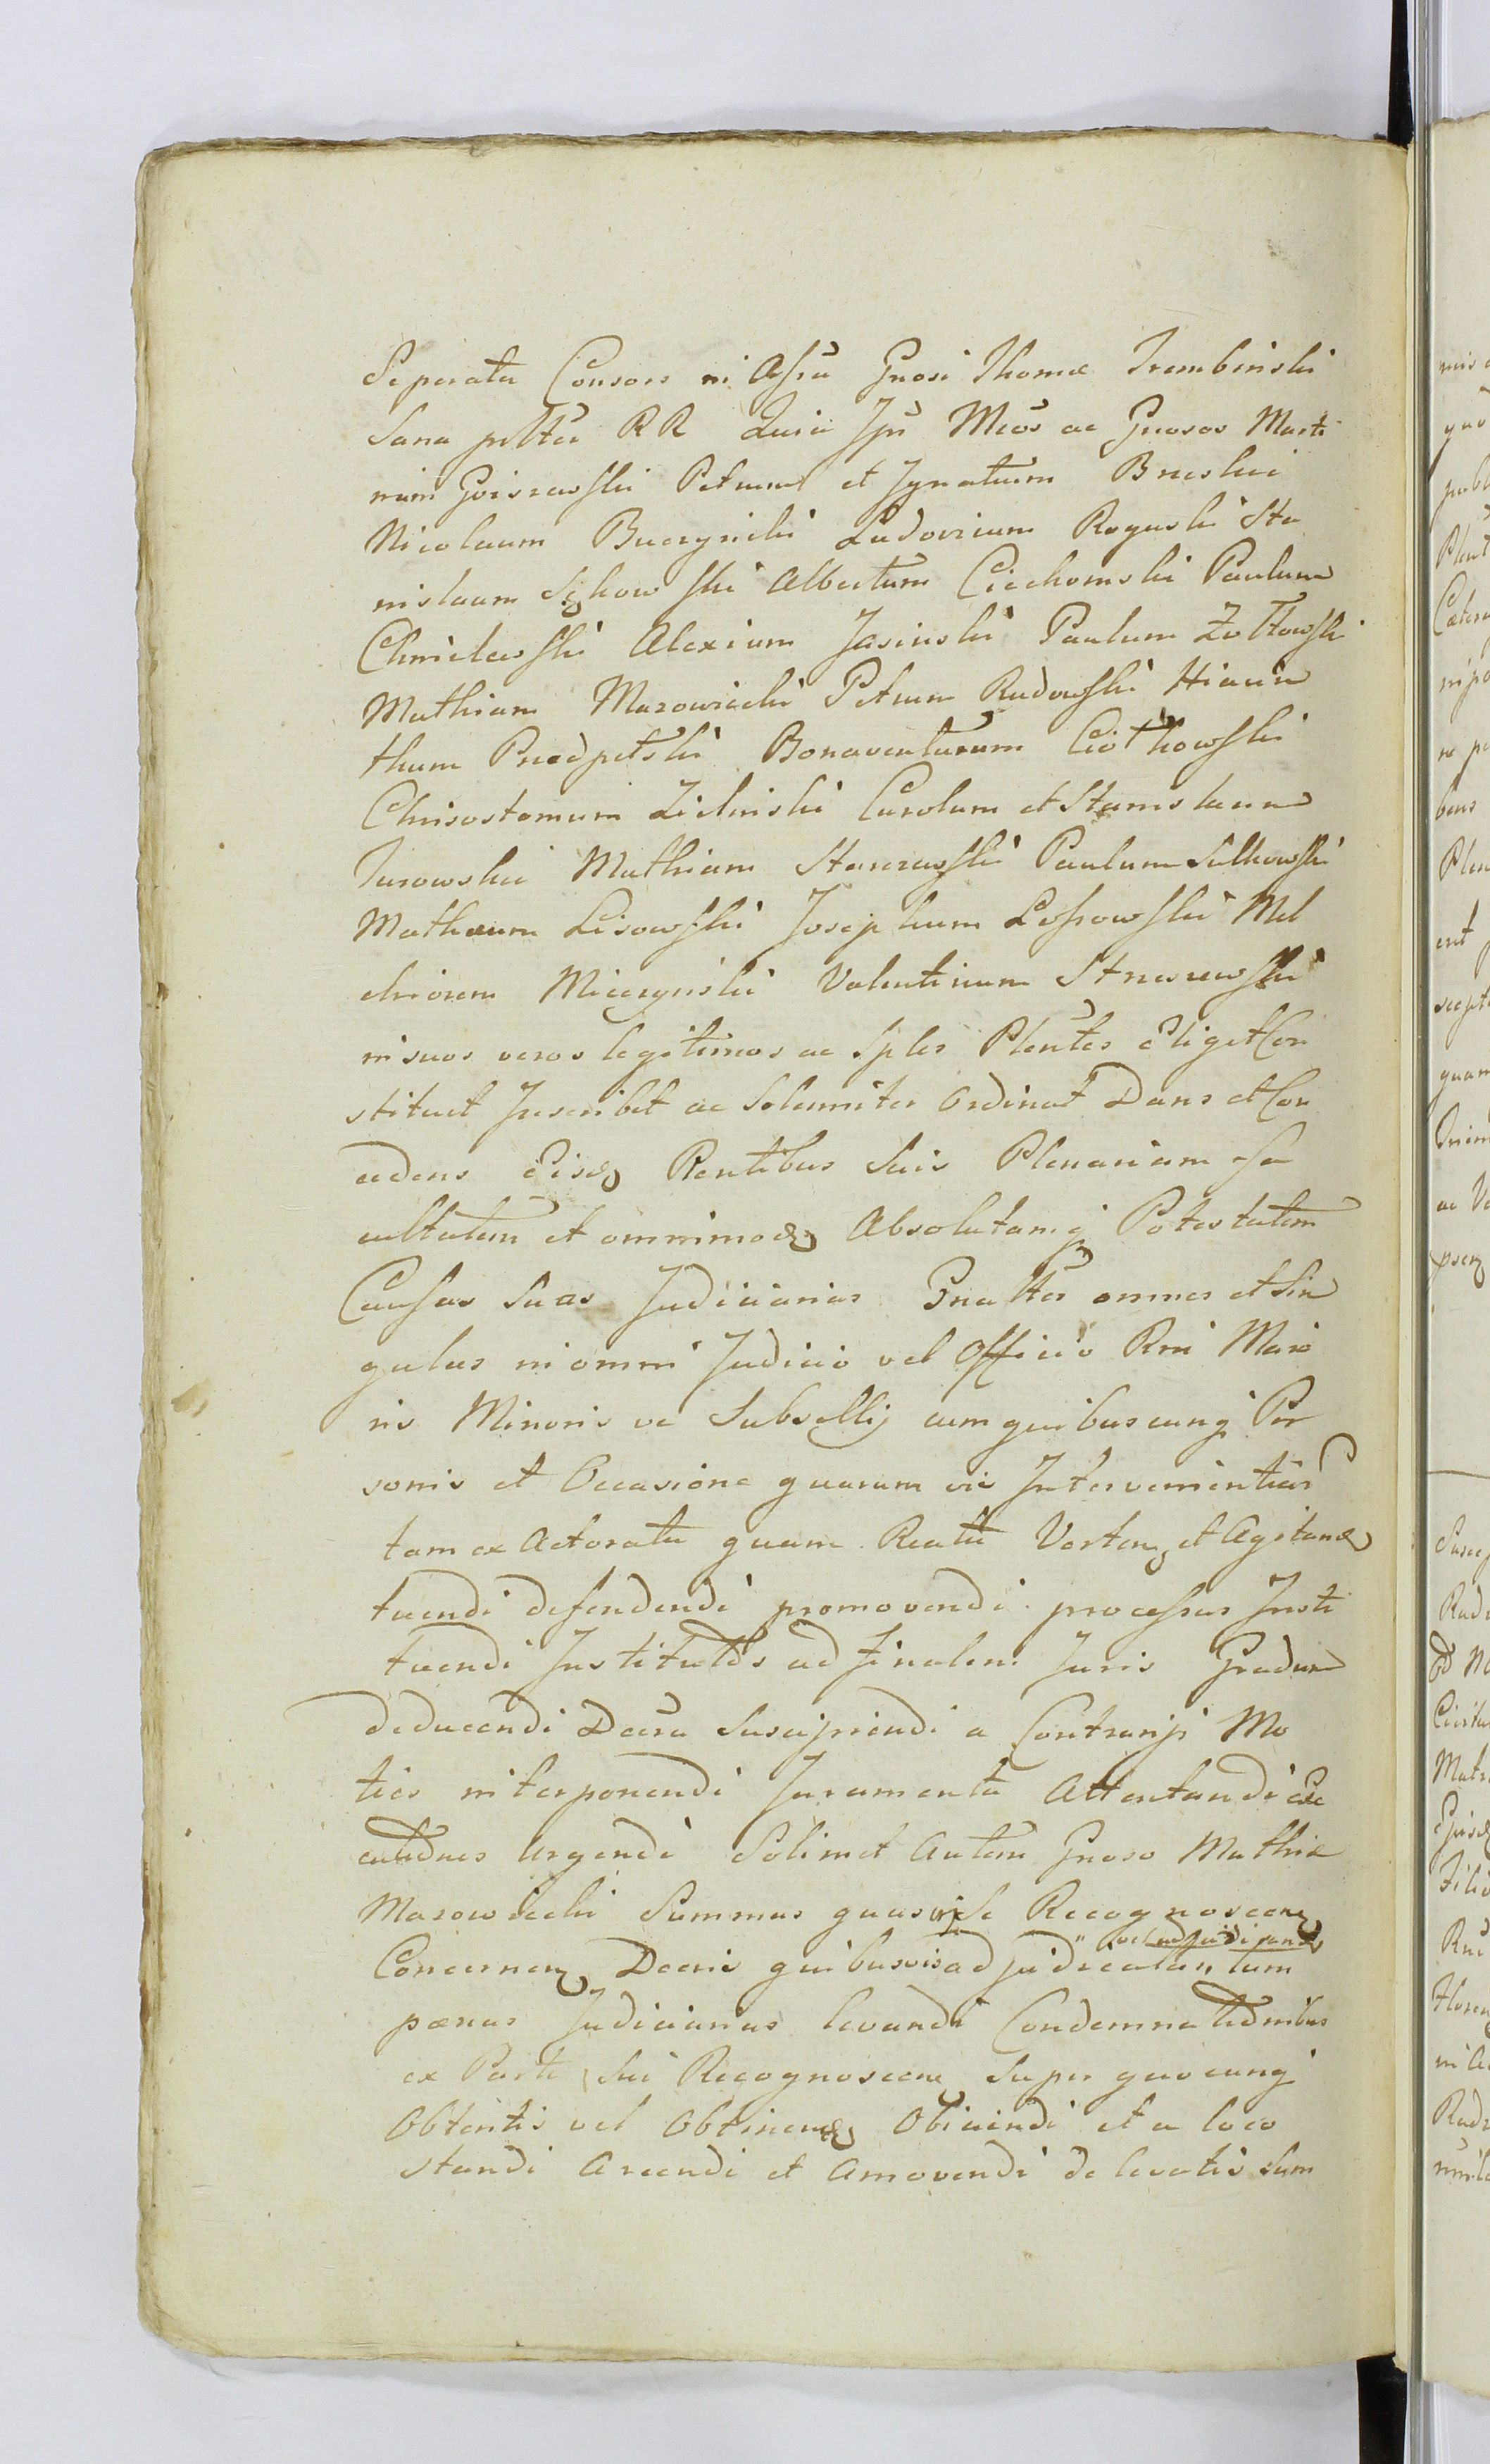 Seperata Consors in Assā Gnosi Thomæ Trembinski
Sana pltēr RR Quia Ipā Mcōs ac Gnosos Marti
num Goiszewski Petrum et Ignatium Brzeski
Nicolaum Buczynski Ludovicum Roguski Sta
nislaum Albertum Ciechomski Paulum
Chmielewski Alexium Jasinski Paulum Zołtowski
Mathiam Mazowiecki Petrum Rudowski Hiacin
thum Przedpełski Bonaventurum Ciołkowski
Chrisostomum Zielinski Carolum et Stanislaum
Turowski Mathiam Stanczewski Paulum Sulkowski
Matheum Lisowski Josephum Lossowski Mel
chiorem Miczynski Valentinum
in suos veros legitimos ac Sples Plentes Eliget Con
stituet Inscribit ac Solemniter Ordinat Dans et Con
cedens Eisd Plentibus Suis Plenariam Fa
cultatem et omnimod Absolutamq Potestatem
Causas Suas Judiciarias Gnaltes omnes et Sin
gulas in omni Judicio vel Officio Rni Maio
ris Minoris ve Subsellij cum quibuscunq Per
sonis et Occasione quarum vis Intervenientias
tam ex Actoratu quam Reatū Verten et Agitand
tuendi defendendi promovendi processus Insti
tuendi Institutos ad finalem Juris Gradum
deducendi Decra Suscipiendi a Contrarijs Mo
ties interponendi Juramenta Attentandi Exe
cutōnes Urgendi Solimet Autem Gnoso Mathiæ
Mazowiecki Summas quasvis Se Recognoscen
Concernen Decris quibusvis adjudicatas " vel adjudicand tum
pœnas Judiciarias levandi Condemnatiōnibus
ex Parte Sui Recognoscen super quocunq
Obtentis vel Obtinend Obiiciendi et a loco
standi Arcendi et Amovendi de levatis Sum